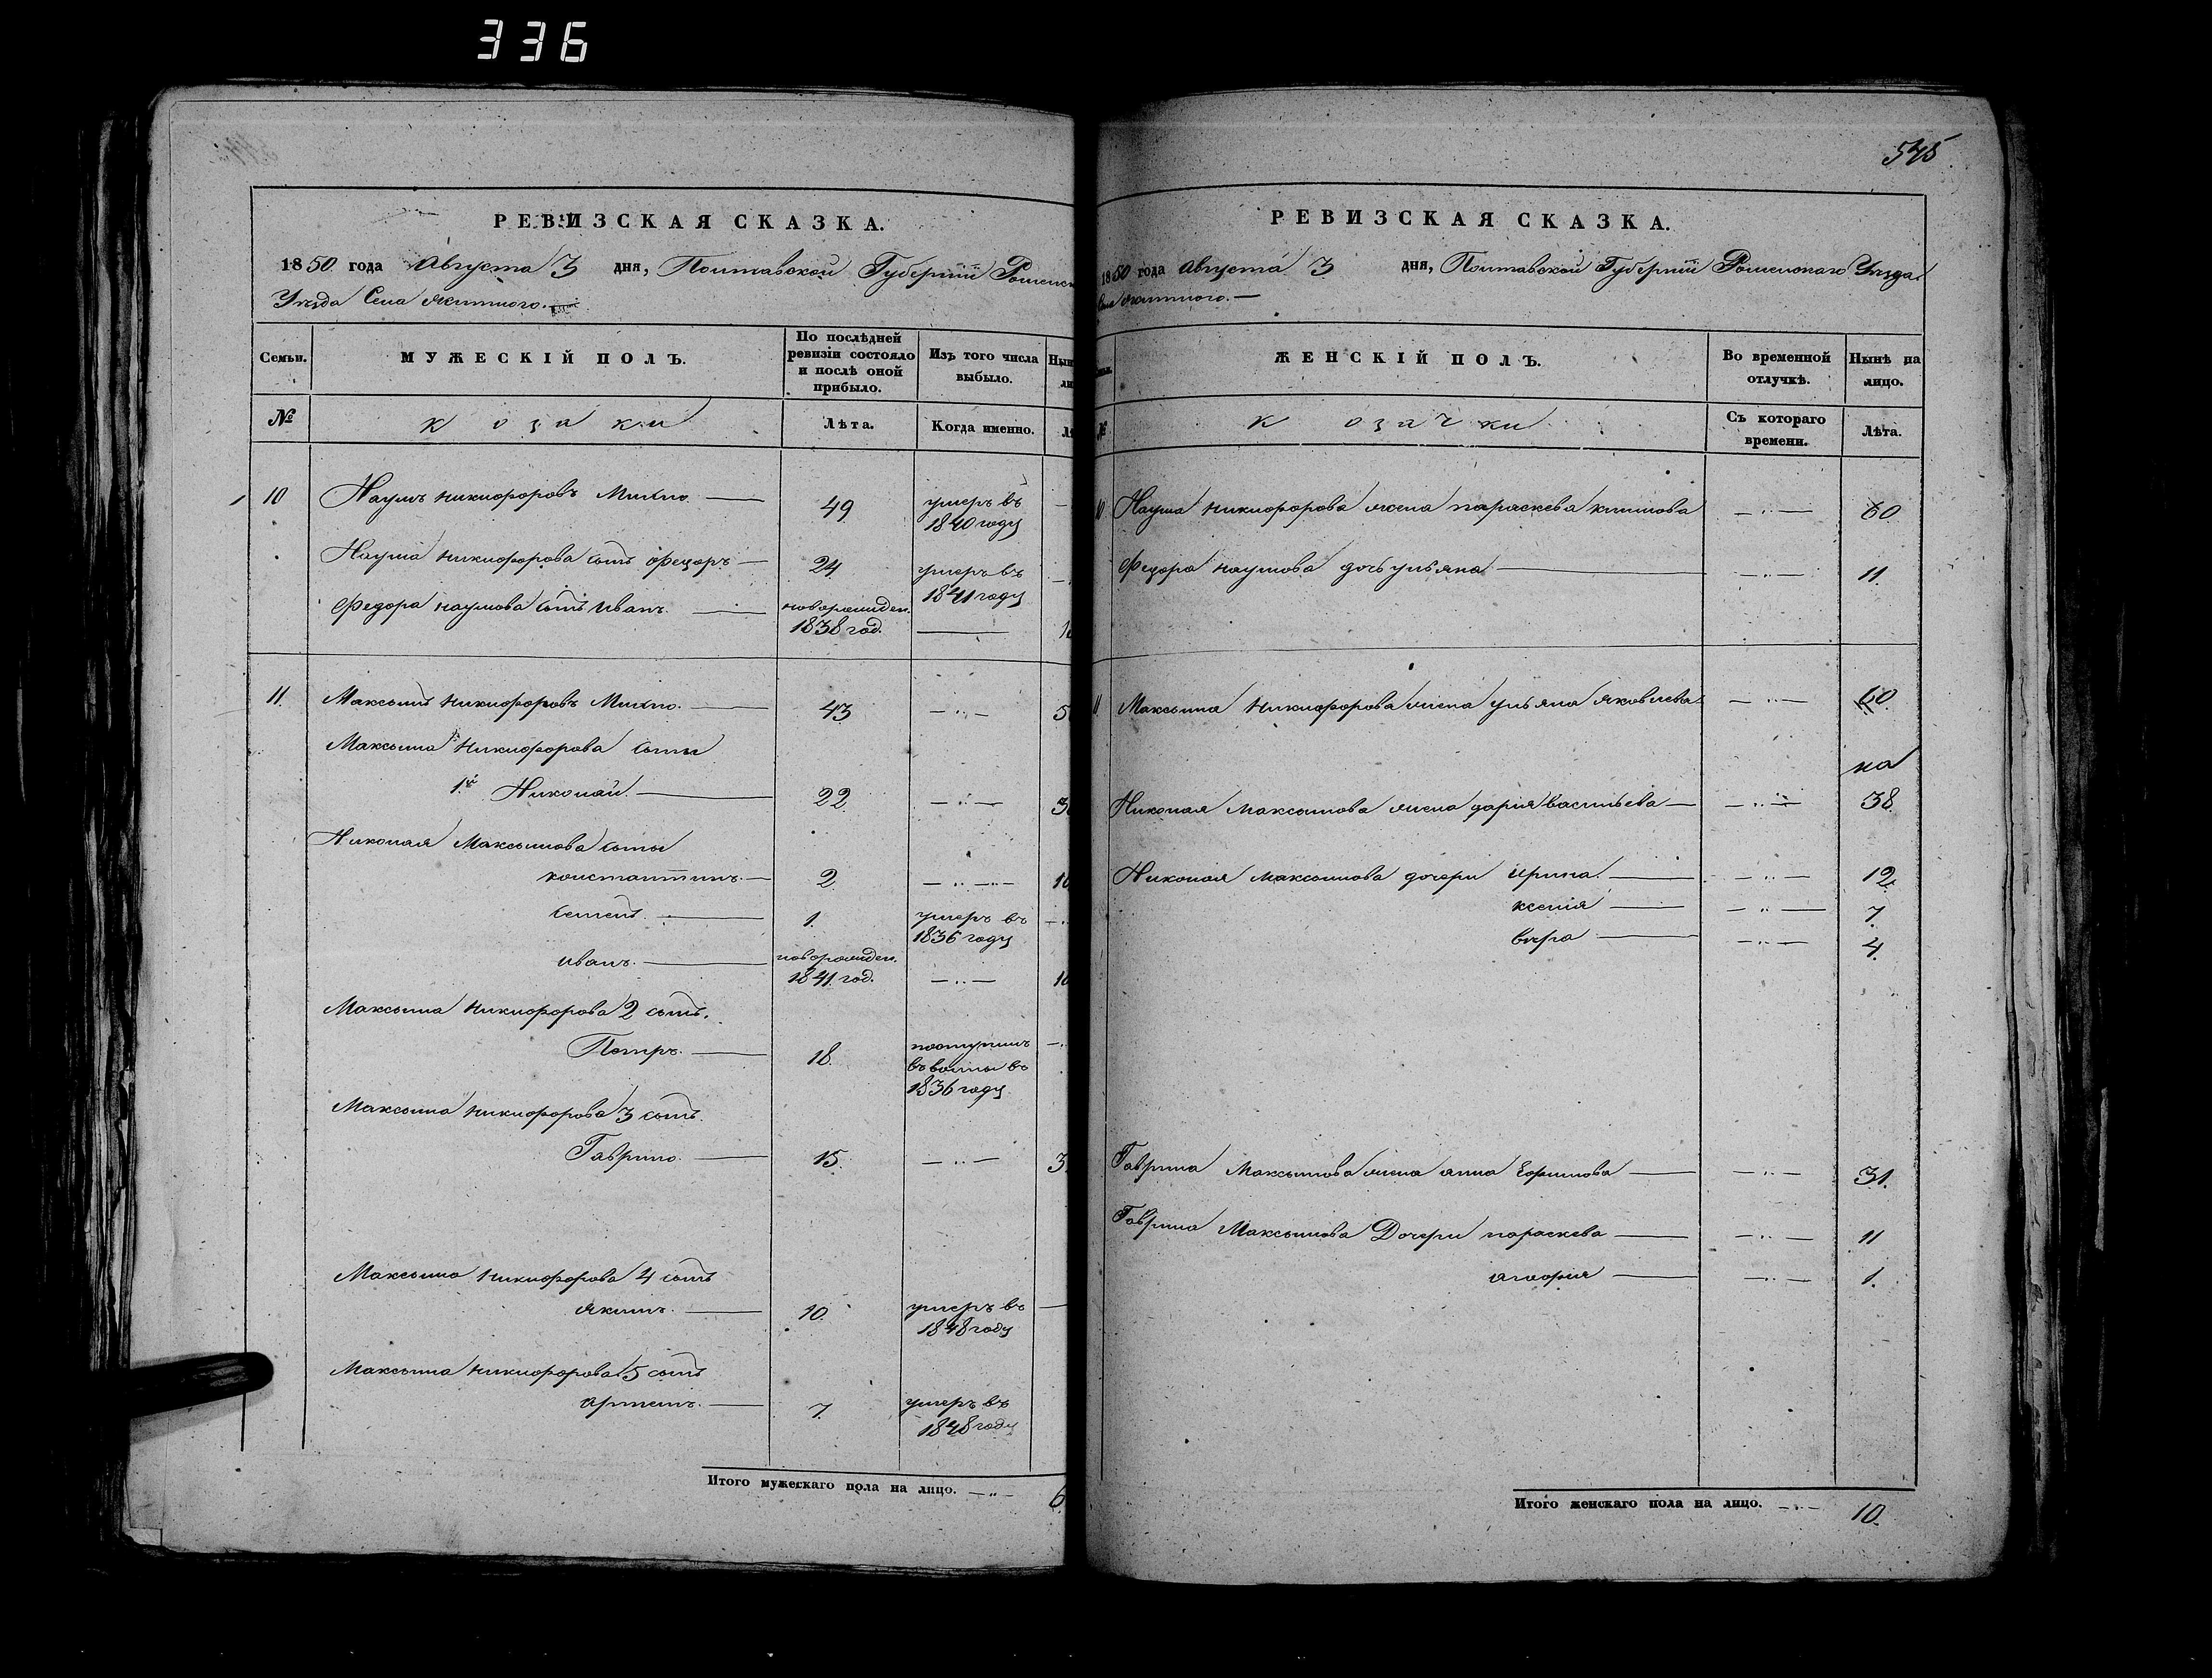 336
РЕВИЗСКАЯ СКАЗКА.
1850 года Августа 3 дня, Полтавской Губернии Роменск
Уезда Села
Семьи.
МУЖЕСКІЙ ПОЛЪ.
По послѣдней ревизіи состояло и послѣ оной прибыло.
Изъ того числа выбыло.
№
Козаки
Лѣта.
Когда именно.
10 Наумъ Никифоровъ Михно 49 умеръ въ
1840 году
Наума Никифорова сынъ Федоръ 24 умеръ въ
1841 году
Федора Наумова сынъ Иванъ новорожден.
1838 год.
11. Максымъ Никифоровъ Михно. 43
Максыма Никифорова сыны
1й Николай. 22
Николая Максымова сыны
Константинъ. 2
Семенъ. 1. умеръ въ
1836 году
Иванъ. новорожден.
1841 год.
Максыма Никифорова 2 сынъ.
Петръ. 18. поступилъ
въ
1836 году
Максыма Никифорова 3 сынъ.
Гаврило. 15.
Максыма Никифорова 4 сынъ
Якимъ. 10. умеръ въ
1848 году
Максыма Никифорова 5 сынъ
Артемъ. 7. умеръ въ
1848 году
Итого мужескаго пола на лицо. 6
545
РЕВИЗСКАЯ СКАЗКА.
1850 года Августа 3 дня, Полтавской Губерніи Роменскаго Уезда.
Села
ЖЕНСКІЙ ПОЛЪ.
Во временной отлучкѣ.
Нынѣ на лицо.
№
Козачки
Съ котораго времени.
Лѣта.
10 Наума Никифорова жена Параскева Климова 60
Федора Наумова дочь Ульяна 11.
11. Максыма Никифорова жена Ульяна Яковлева 60.
на
Николая Максымова жена Дарія Васильева 38.
Николая Максымова дочери Ирина. 12.
Ксенія 7.
Вера 4.
Гаврила Максымова жена Анна Ефимова 31.
Гаврила Максымова Дочери Параскева 11
Агафія 1.
Итого женскаго пола на лицо. 10.